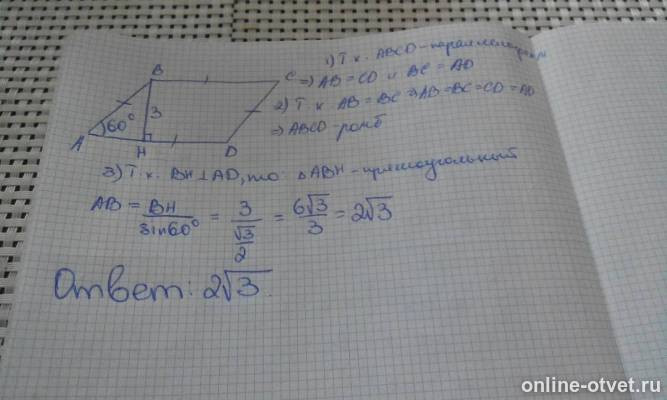 1) Т.к. ABCD - параллелограм
=> AB = CD и BC = AD
2) Т.к AB = BC => AB = BC = CD = AD
=> ABCD - ромб
B
C
3
60°
A
H
D
3) Т.к. BH ⊥ AD, то △ABH - прямоугольный
AB = BH / sin60° = 3 / (√3/2) = 6√3 / 3 = 2√3
Ответ: 2√3.
online-otvet.ru